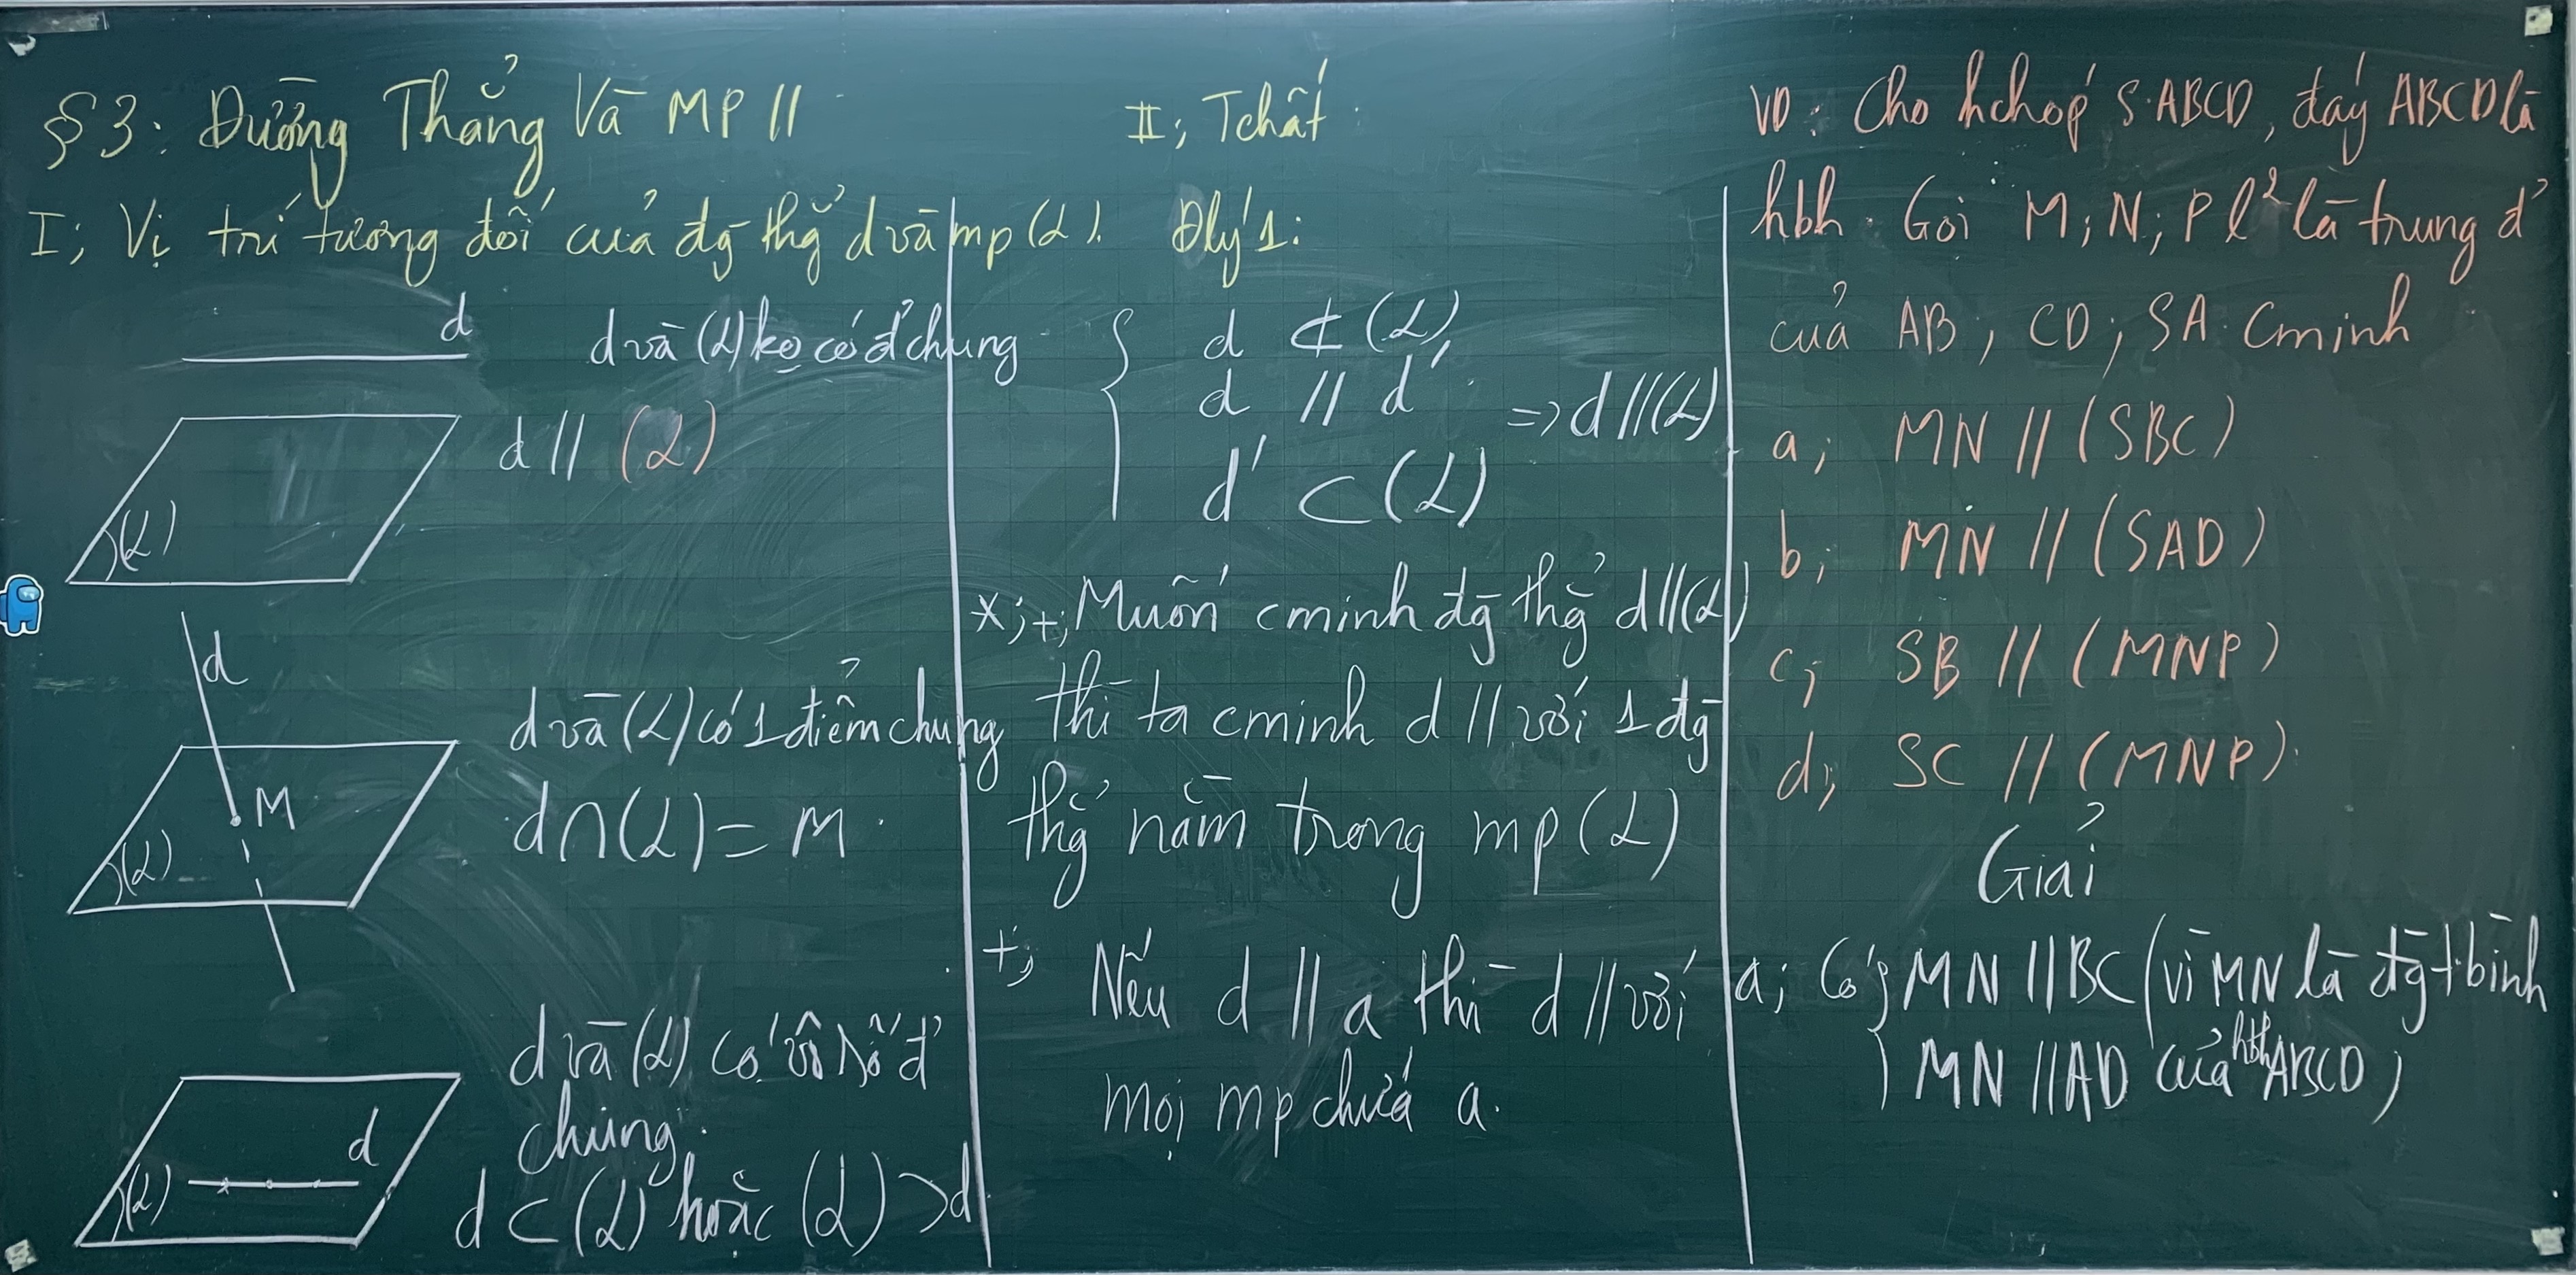 §3: Đường Thẳng Và MP //
I; Vị trí tương đối của đg thg̉ d và mp (α).
d
d và (α) ko có đ' chung
d // (α)
(α)
d
d và (α) có 1 điểm chung
M
d ∩ (α) = M
(α)
d và (α) có vô số đ'
chung.
d
(α)
d ⊂ (α) hoặc (α) ⊃ d
II; Tchất
Đlý 1:
d ⊄ (α)
d // d'
=> d // (α)
d' ⊂ (α)
*; +; Muốn cminh đg thg̉ d // (α)
thì ta cminh d // với 1 đg
thg̉ nằm trong mp (α)
+; Nếu d // a thì d // với
mọi mp chứa a.
VD: Cho hchóp S.ABCD, đáy ABCD là
hbh. Gọi M; N; P l² là trung đ'
của AB, CD; SA. Cminh
a; MN // (SBC)
b; MN // (SAD)
c; SB // (MNP)
d; SC // (MNP).
Giải
a; Có { MN // BC (vì MN là đg tbình
MN // AD của hbh ABCD)